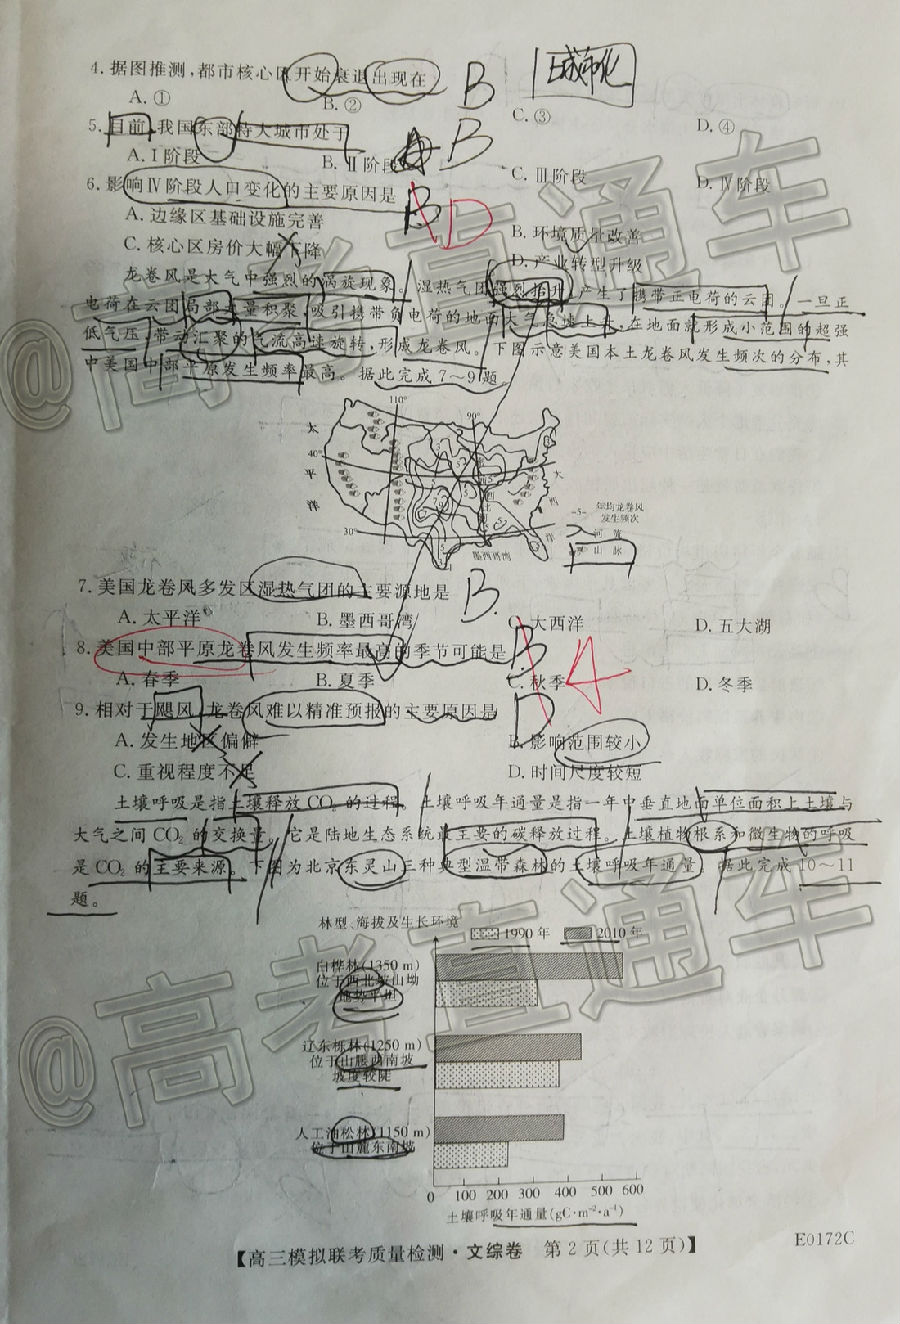 4. 据图推测,都市核心区开始衰退出现在 B 城市化
A. ① B. ② C. ③ D. ④
5. 目前,我国东部特大城市处于 B
A. Ⅰ阶段 B. Ⅱ阶段 C. Ⅲ阶段 D. Ⅳ阶段
6. 影响Ⅳ阶段人口变化的主要原因是 B D
A. 边缘区基础设施完善 B. 环境质量改善
C. 核心区房价大幅下降 D. 产业转型升级
龙卷风是大气中强烈的涡旋现象。湿热气团强烈抬升,产生了携带正电荷的云团。一旦正
电荷在云团局部大量积聚,吸引携带负电荷的地面大气急速上升,在地面就形成小范围的超强
低气压,带动汇聚的气流高速旋转,形成龙卷风。下图示意美国本土龙卷风发生频次的分布,其
中美国中部平原发生频率最高。据此完成7~9题。
110° 90°
太
40° 40°
平 大
西
洋 -5- 年均龙卷风
发生频次
30° 洋 河流
墨西哥湾 山脉
7. 美国龙卷风多发区湿热气团的主要源地是 B
A. 太平洋 B. 墨西哥湾 C. 大西洋 D. 五大湖
8. 美国中部平原龙卷风发生频率最高的季节可能是 B A
A. 春季 B. 夏季 C. 秋季 D. 冬季
9. 相对于飓风,龙卷风难以精准预报的主要原因是 D
A. 发生地区偏僻 B. 影响范围较小
C. 重视程度不足 D. 时间尺度较短
土壤呼吸是指土壤释放CO₂的过程。土壤呼吸年通量是指一年中垂直地面单位面积上土壤与
大气之间CO₂的交换量。它是陆地生态系统最主要的碳释放过程。土壤植物根系和微生物的呼吸
是CO₂的主要来源。下图为北京东灵山三种典型温带森林的土壤呼吸年通量。据此完成10~11
题。
林型、海拔及生长环境
1990年 2010年
白桦林(1350 m)
位于西北坡山坳
地势平坦
辽东栎林(1250 m)
位于山腰西南坡
坡度较陡
人工油松林(1150 m)
位于山麓东南坡
0 100 200 300 400 500 600
土壤呼吸年通量(gC·m⁻²·a⁻¹)
【高三模拟联考质量检测·文综卷 第2页(共12页)】 E0172C
@高考直通车
@高考直通车